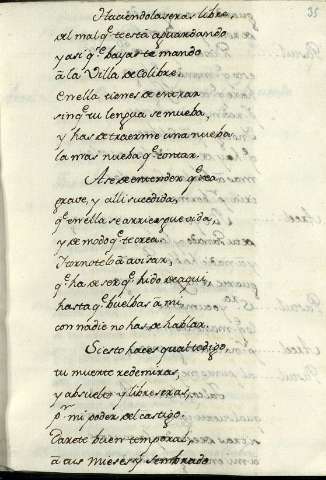 35
Haciendolo seras libre,
del mal q̃ te esta aguardando
y asi q̃ bayas te mando
â la Villa de Colibre.
En ella tienes de entrar
sin q̃ tu lengua se mueba,
y has de traerme una nueba
la mas nueba q̃ contar.
A se de entender q̃ sea
grave, y alli sucedida,
q̃ en ella se arriesgue vida,
y de modo q̃ te crea.
Tornotelo â avisar
q̃ ha de ser q̃ ido de aqui
hasta q̃ buelbas â mi,
con nadie no has de hablar.
Si esto haces qual te digo,
tu muerte redemiras,
y absuelto y libre seras,
pr mi poder del castigo.
Darete buen temporal,
â tus mieses y sembrado